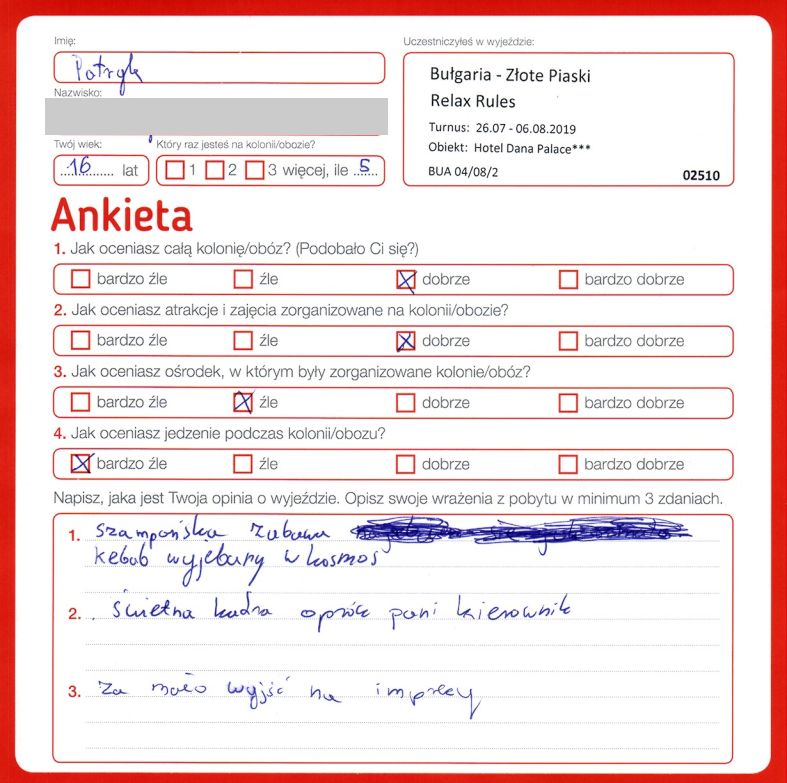 Imię:
Patryk
Nazwisko:
Twój wiek:
Który raz jesteś na kolonii/obozie?
16 lat
1 2 3 więcej, ile 5
Uczestniczyłeś w wyjeździe:
Bułgaria - Złote Piaski
Relax Rules
Turnus: 26.07 - 06.08.2019
Obiekt: Hotel Dana Palace***
BUA 04/08/2 02510
Ankieta
1. Jak oceniasz całą kolonię/obóz? (Podobało Ci się?)
bardzo źle źle dobrze bardzo dobrze
2. Jak oceniasz atrakcje i zajęcia zorganizowane na kolonii/obozie?
bardzo źle źle dobrze bardzo dobrze
3. Jak oceniasz ośrodek, w którym były zorganizowane kolonie/obóz?
bardzo źle źle dobrze bardzo dobrze
4. Jak oceniasz jedzenie podczas kolonii/obozu?
bardzo źle źle dobrze bardzo dobrze
Napisz, jaka jest Twoja opinia o wyjeździe. Opisz swoje wrażenia z pobytu w minimum 3 zdaniach.
1. szampańska zabawa
kebab wyjebany w kosmos
2. świetna kadra oprócz pani kierownik
3. za mało wyjść na imprezy